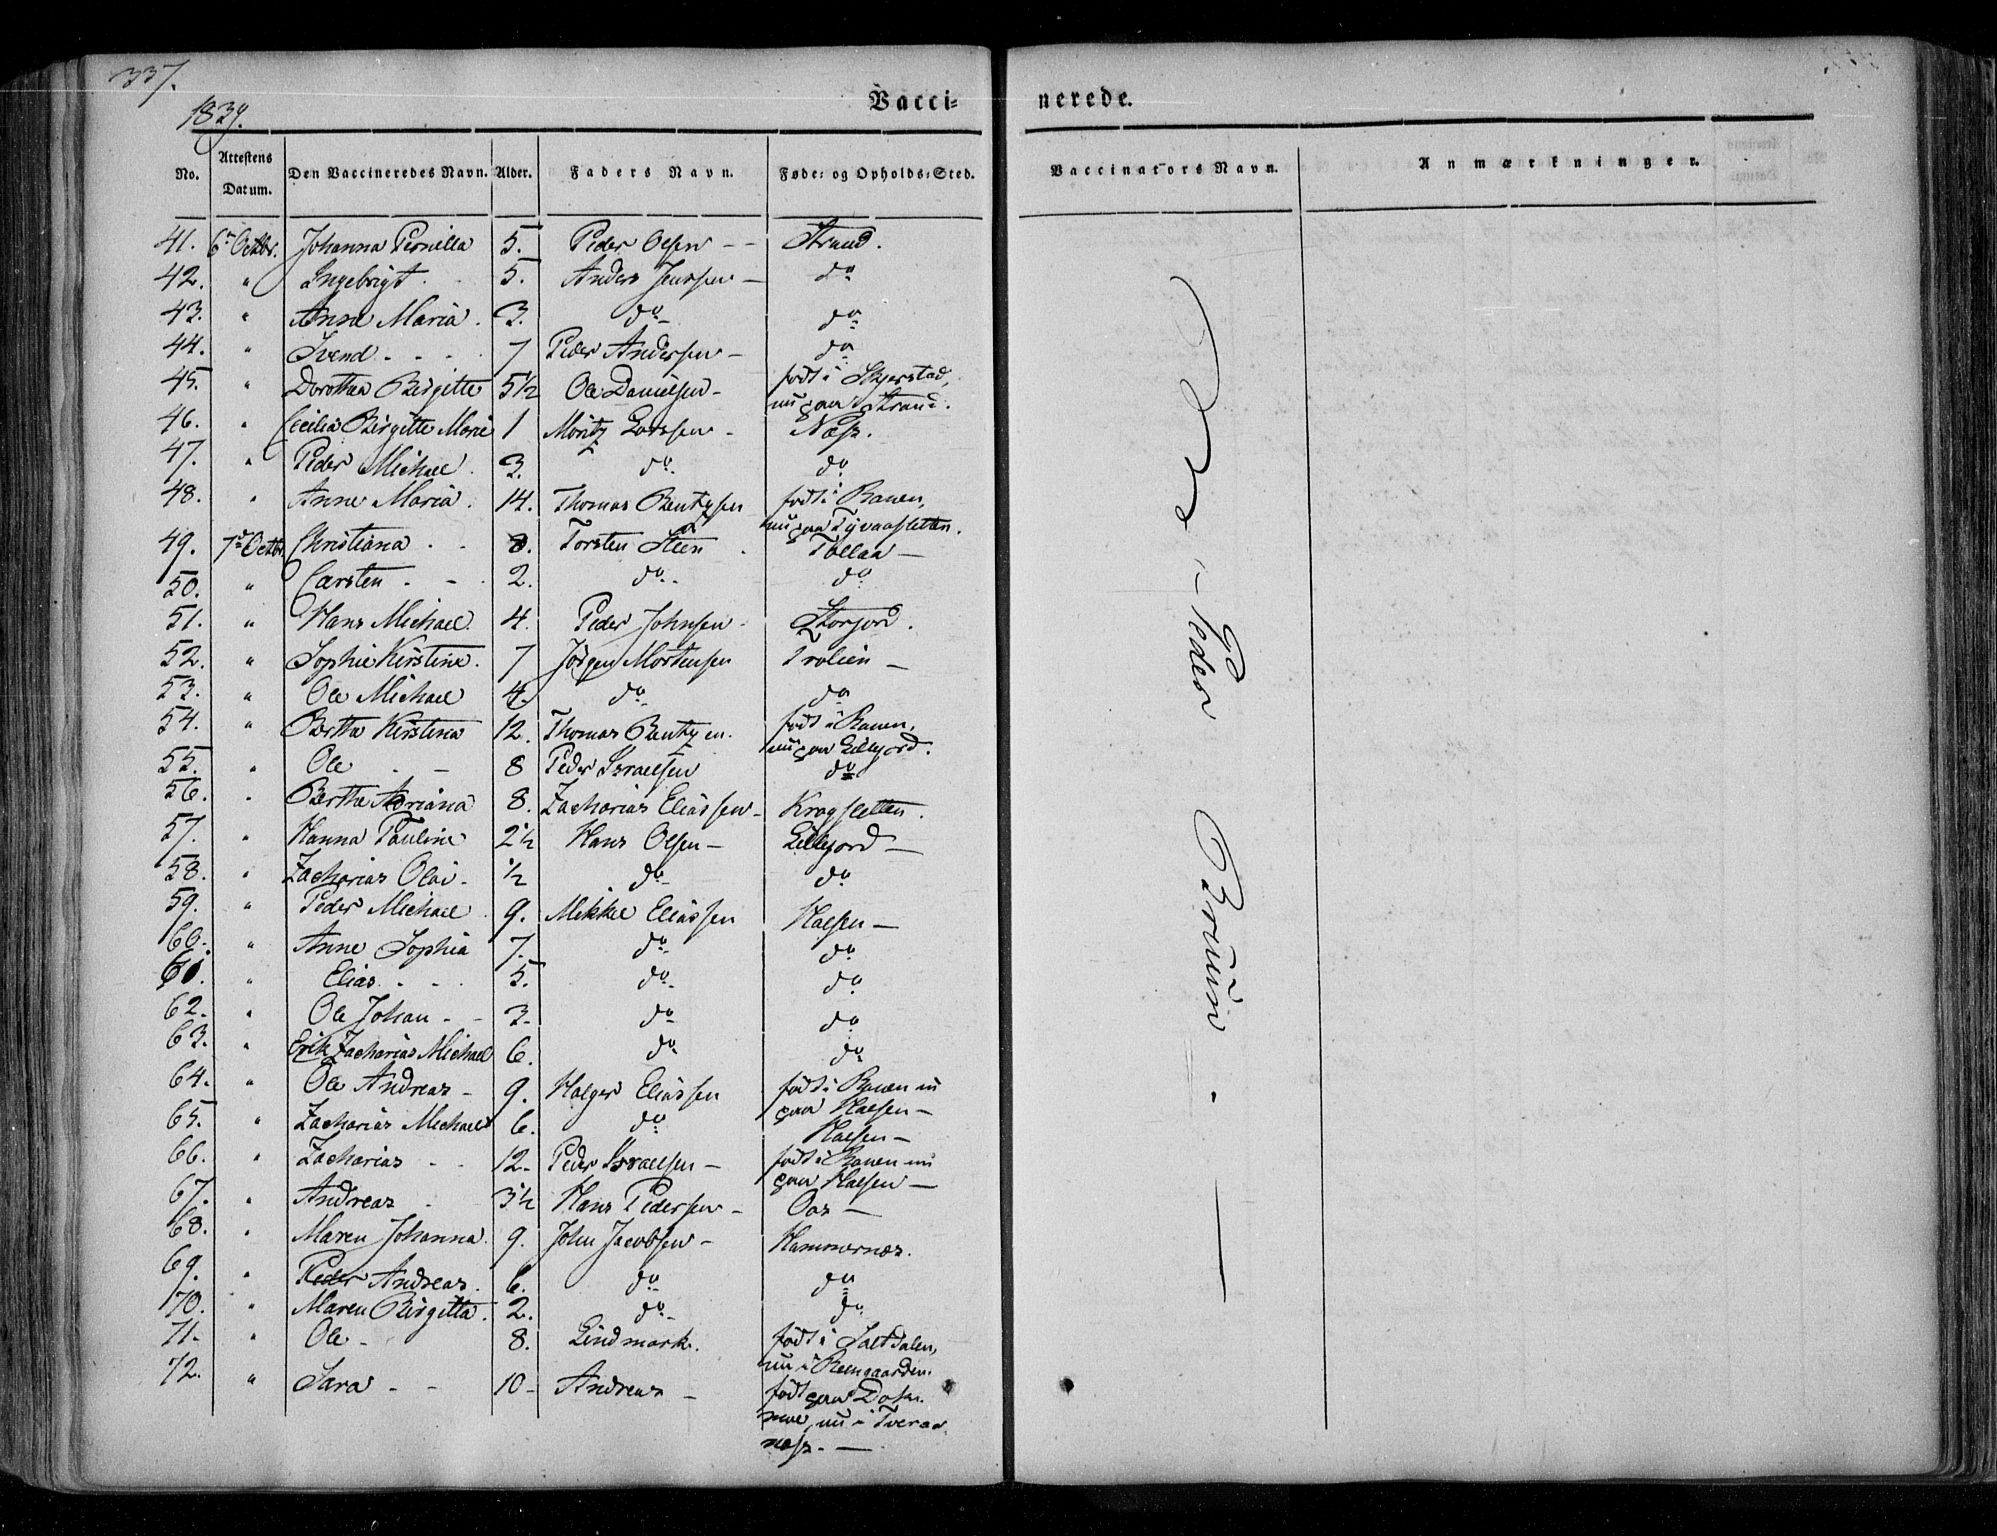 337.
1839.
Vacci- nerede.
No. Attestens Datum. Den Vaccineredes Navn. Alder. Faders Navn. Føde- og Opholds-Sted. Vaccinators Navn. Anmærkninger.
41. 6te Octbr. Johanna Pernilla 5. Peder Olsen - - Strand.
42. " Ingebrigt . 5. Anders Jenssen - do
43. " Anne Maria . 3. do do
44. " Svend - - - 7 Peder Andersen - do
45. " Dorothea Birgitte 5½ Ole Danielsen - født i Skjerstad,
nu paa Strand.
46. " Cecilia Birgitte Marie 1 Moritz Larssen - Næss.
47. " Peder Michael . 3. do do
48. " Anne Maria . 14. Thomas Bentzsen født i Ranen,
nu paa Tyvaasletten.
49. 7de Octbr. Christiana . . 8. Torsten Steen . Tollaa -
50. " Carsten . - . 2. do do
51. " Hans Michael . 4. Peder Johnsen - Storjord.
52. " Sophie Kirstine . 7 Jörgen Mortensen Trolien -
53. " Ole Michael 4. do do
54. " Berthe Kirstina 12. Thomas Bentzen. født i Ranen,
nu paa Lillejord.
55. " Ole . - 8 Peder Israelsen do
56. " Berthe Adriana 8. Zacharias Eliassen - Kragsletten.
57. " Hanna Pauline 2½ Hans Olsen - Lillejord -
58. " Zacharias Olai - ½ do do
59. " Peder Michael 9. Mikkel Eliassen Halsen -
60. " Anne Sophia 7. do do
61. " Elias . - - 5. do do
62. " Ole Johan - - 3. do do
63. " Erik Zacharias Michael 6. do do
64. " Ole Andreas - 9. Holger Eliassen født i Ranen nu
paa Halsen -
65. " Zacharias Michael 6. do Halsen -
66. " Zacharias - - 12. Peder Israelsen - født i Ranen nu
paa Halsen -
67. " Andreas - 3½ Hans Pedersen - Oas -
68. " Maren Johanna . 9. John Jacobsen - Hammernæs.
69. " Peder Andreas . 6. do do
70. " Maren Birgitta . 2. do do
71. " Ole - 8. Lindmark. født i Saltdalen,
nu i Reengaarden.
72. " Sara - - 10 - Andreas - født paa
nu i Tveraa-
næss. -
Peder Bruun. -